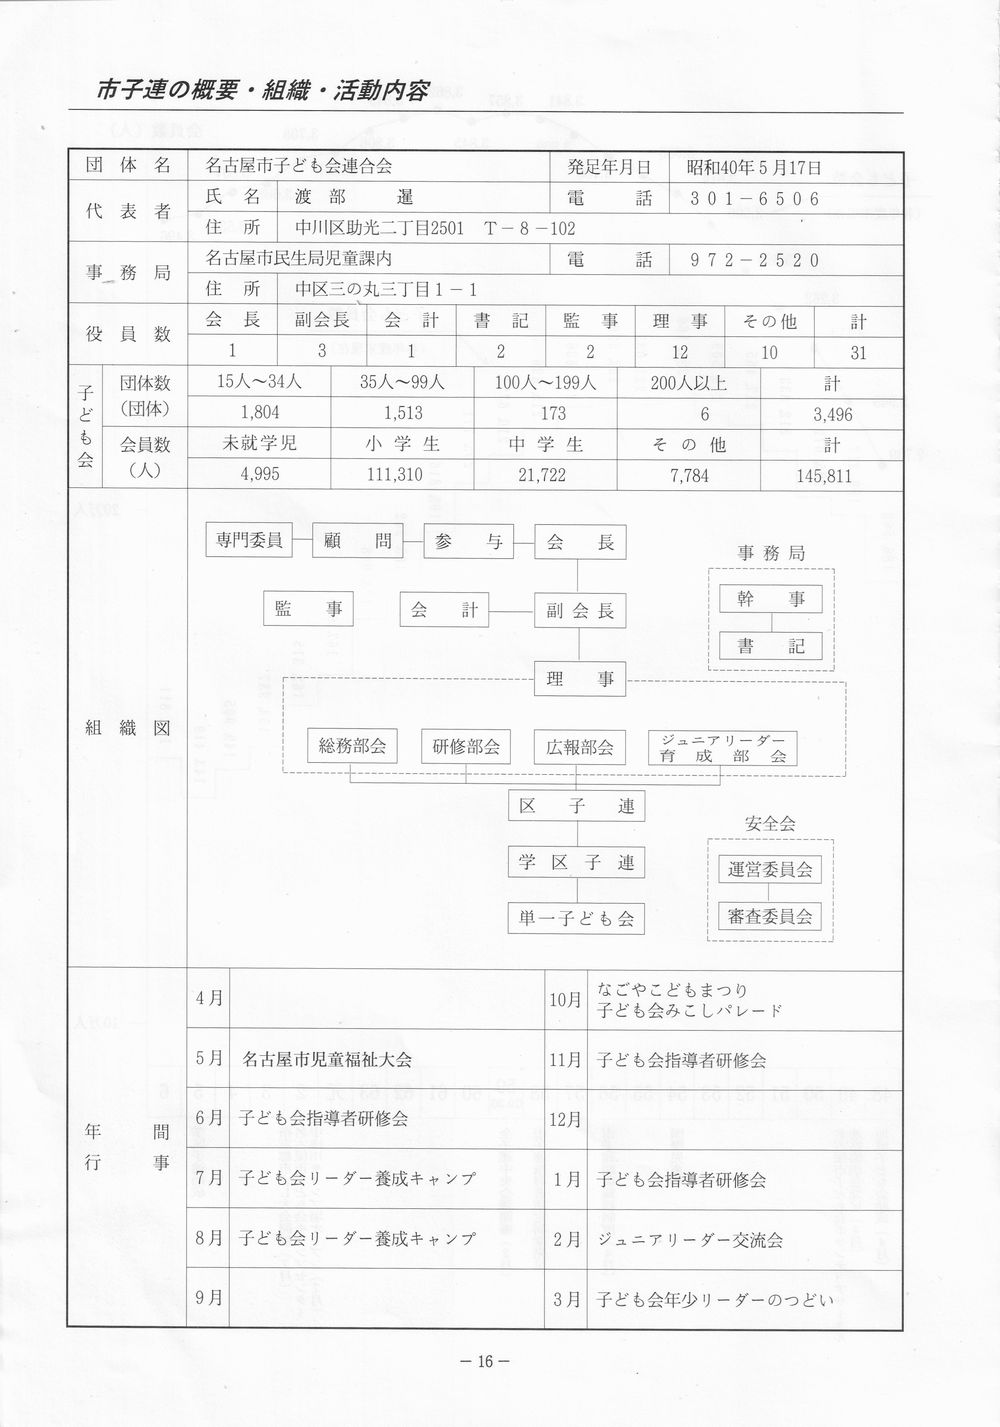 市子連の概要・組織・活動内容
団体名 名古屋市子ども会連合会 発足年月日 昭和40年5月17日
代表者 氏名 渡部 暹 電話 301－6506
住所 中川区助光二丁目2501 T－8－102
事務局 名古屋市民生局児童課内 電話 972－2520
住所 中区三の丸三丁目1－1
役員数 会長 副会長 会計 書記 監事 理事 その他 計
1 3 1 2 2 12 10 31
子ども会 団体数（団体） 15人〜34人 35人〜99人 100人〜199人 200人以上 計
1,804 1,513 173 6 3,496
会員数（人） 未就学児 小学生 中学生 その他 計
4,995 111,310 21,722 7,784 145,811
組織図
専門委員 顧問 参与 会長
事務局
監事 会計 副会長 幹事
書記
理事
総務部会 研修部会 広報部会 ジュニアリーダー
育成部会
区子連
安全会
学区子連 運営委員会
単一子ども会 審査委員会
年間
行事
4月
10月 なごやこどもまつり
子ども会みこしパレード
5月 名古屋市児童福祉大会
11月 子ども会指導者研修会
6月 子ども会指導者研修会
12月
7月 子ども会リーダー養成キャンプ
1月 子ども会指導者研修会
8月 子ども会リーダー養成キャンプ
2月 ジュニアリーダー交流会
9月
3月 子ども会年少リーダーのつどい
－16－